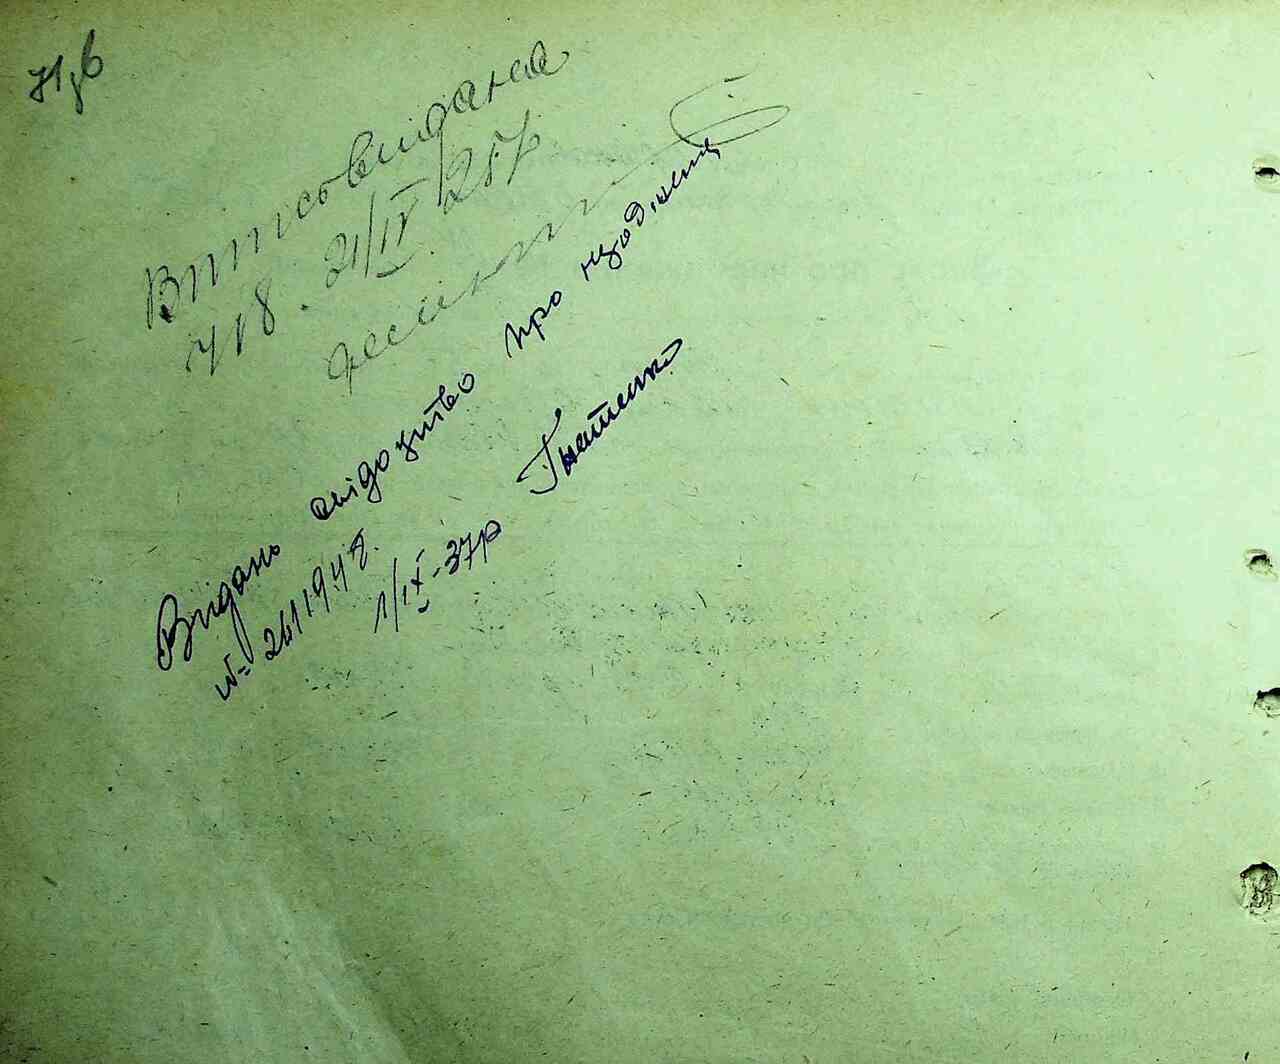 71зв
Випис видана
418. 21/IV 25 р
Видано свідоцтво про народжень
№ 2611948.
1/IX-37р Гнатенко